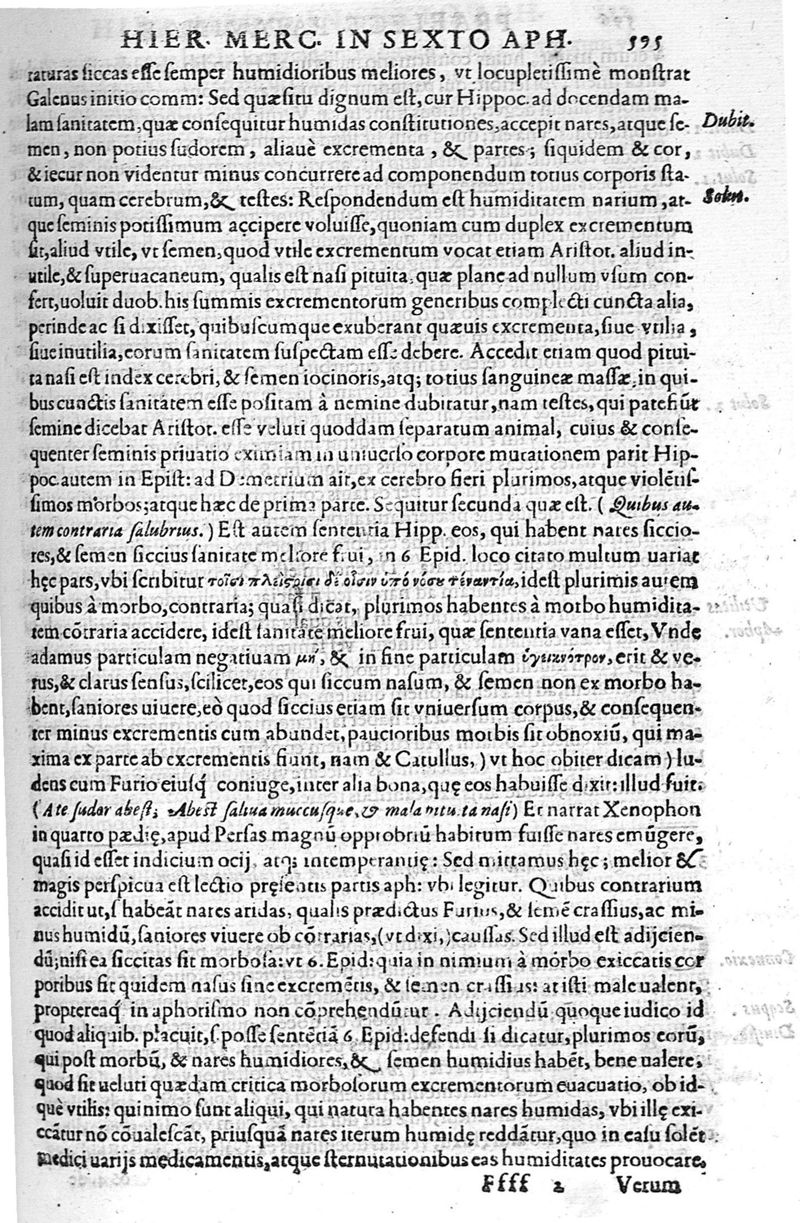 HIER. MERC. IN SEXTO APH. 595
raturas siccas esse semper humidioribus meliores, vt locupletissimè monstrat
Galenus initio comm: Sed quæsitu dignum est, cur Hippoc. ad docendam ma-
lam sanitatem, quæ consequitur humidas constitutiones, accepit nares, atque se- Dubit.
men, non potius sudorem, aliauè excrementa, & partes; siquidem & cor,
& iecur non videntur minus concurrere ad componendum totius corporis sta-
tum, quam cerebrum, & testes: Respondendum est humiditatem narium, at- Solut.
que seminis potissimum accipere voluisse, quoniam cum duplex excrementum
sit, aliud vtile, vt semen, quod vtile excrementum vocat etiam Aristot. aliud in-
utile, & superuacaneum, qualis est nasi pituita, quæ plane ad nullum vsum con-
fert, uoluit duob. his summis excrementorum generibus complecti cuncta alia,
perinde ac si dixisset, quibuscumque exuberant quæuis excrementa, siue vtilia,
siue inutilia, eorum sanitatem suspectam esse debere. Accedit etiam quod pitui-
ta nasi est index cerebri, & semen iocinoris, atq; totius sanguineæ massæ, in qui-
bus cunctis sanitatem esse positam à nemine dubitatur, nam testes, qui
semine dicebat Aristot. esse veluti quoddam separatum animal, cuius & conse-
quenter seminis priuatio eximiam in uniuerso corpore mutationem parit Hip-
poc. autem in Epist: ad Demetrium ait, ex cerebro fieri plurimos, atque violētis-
simos morbos; atque hæc de prima parte. Sequitur secunda quæ est. (Quibus au-
tem contraria salubrius.) Est autem sententia Hipp. eos, qui habent nares siccio-
res, & semen siccius sanitate meliore frui, in 6 Epid. loco citato multum uariat
hęc pars, vbi scribitur τοῖσι πλείστοισι δὲ οἷσιν ὑπὸ νόσου τἀναντία, idest plurimis autem
quibus à morbo, contraria; quasi dicat, plurimos habentes à morbo humidita-
tem cōtraria accidere, idest sanitate meliore frui, quæ sententia vana esset, Vnde
adamus particulam negatiuam μή, & in fine particulam ὑγιεινότερον, erit & ve-
rus, & clarus sensus, scilicet, eos qui siccum nasum, & semen non ex morbo ha-
bent, saniores uiuere, eò quod siccius etiam sit vniuersum corpus, & consequen-
ter minus excrementis cum abundet, paucioribus morbis sit obnoxiū, qui ma-
xima ex parte ab excrementis fiunt, nam & Catullus,) vt hoc obiter dicam) lu-
dens cum Furio eiusq́ coniuge, inter alia bona, quę eos habuisse dixit: illud fuit:
(A te sudor abest; Abest saliua muccusque, & mala pituita nasi) Et narrat Xenophon
in quarto pædię, apud Persas magnū opprobriū habitum fuisse nares emūgere,
quasi id esset indicium ocij, atq; intemperantię: Sed mittamus hęc; melior &
magis perspicua est lectio pręsentis partis aph: vbi legitur. Quibus contrarium
accidit ut, s habeāt nares aridas, qualis prædictus Furius, & semē crassius, ac mi-
nus humidū, saniores viuere ob cōtrarias, (vt dixi,) caussas. Sed illud est adijcien-
dū; nisi ea siccitas sit morbosa: vt 6. Epid: quia in nimium à morbo exiccatis cor
poribus sit quidem nasus sine excremētis, & semen crassius: at isti male ualent,
proptereaq́ in aphorismo non cōprehendūtur. Adijciendū quoque iudico id
quod aliquib. placuit, s. posse sentētiā 6. Epid: defendi si dicatur, plurimos eorū,
qui post morbū, & nares humidiores, & semen humidius habēt, bene ualere,
quod sit ueluti quædam critica morbosorum excrementorum euacuatio, ob id-
què vtilis: qui nimo sunt aliqui, qui natura habentes nares humidas, vbi illę exi-
ccātur nō cōualescāt, priusquā nares iterum humidę reddātur, quo in casu solēt
medici uarijs medicamentis, atque sternutationibus eas humiditates prouocare,
Ffff 2 Verum